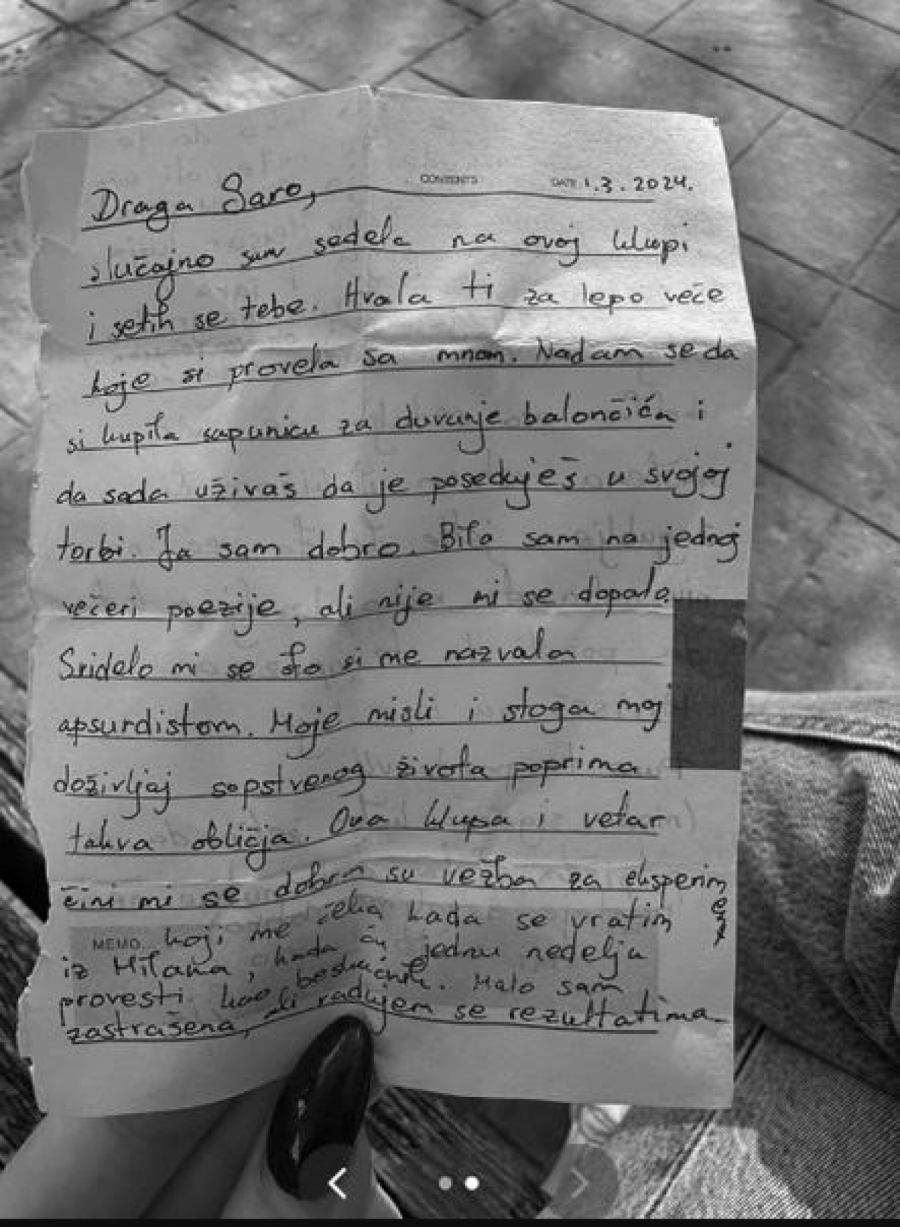 CONTENTS DATE 1.3.2024.
Draga Saro,
slučajno sam sedela na ovoj klupi
i setih se tebe. Hvala ti za lepo veče
koje si provela sa mnom. Nadam se da
si kupila sapunicu za duvanje balončića i
da sada uživaš da je poseduješ u svojoj
torbi. Ja sam dobro. Bila sam na jednoj
večeri poezije, ali nije mi se dopalo.
Svidelo mi se što si me nazvala
apsurdistom. Moje misli i stoga moj
doživljaj sopstvenog života poprima
takva obličja. Ova klupa i vetar
čini mi se dobra su vežba za eksperiment
MEMO koji me čeka kada se vratim
iz Milana, kada ću jednu nedelju
provesti kao beskućnik. Malo sam
zastrašena, ali radujem se rezultatima